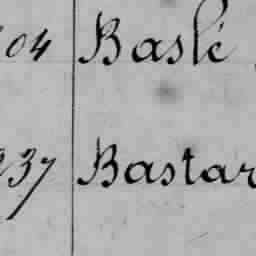 04 Baslé
237 Bastar